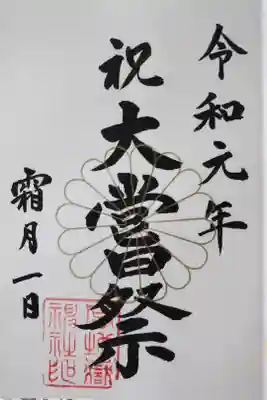 令和元年
祝 大嘗祭
霜月一日